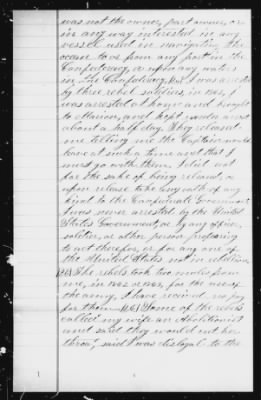 was not the owner, part owner, or
in any way interested in any
vessel used in navigating the
ocean to or from any port in the
Confederacy, or upon any waters
in the Confederacy, I was arrested
by three rebel soldiers, in 1863, I
was arrested at home and brought
to Marion, and kept under arrest
about a half day. They released
me telling me the Captain would
have at such a time and that I
must go with them, I did not
for the sake of being released, or
upon release take any oath of any
kind to the Confederate Government
I was never arrested by the United
States Government, or by any officer,
soldier, or other person professing
to act therefor, or for any one of
the United States not in rebellion
The rebels took two mules from
me, in 1862 or 1863, for the use of
the army, I have received no pay
for them Some of the rebels
called my wife an Abolitionist
and said they would cut her
throat said I was disloyal to the